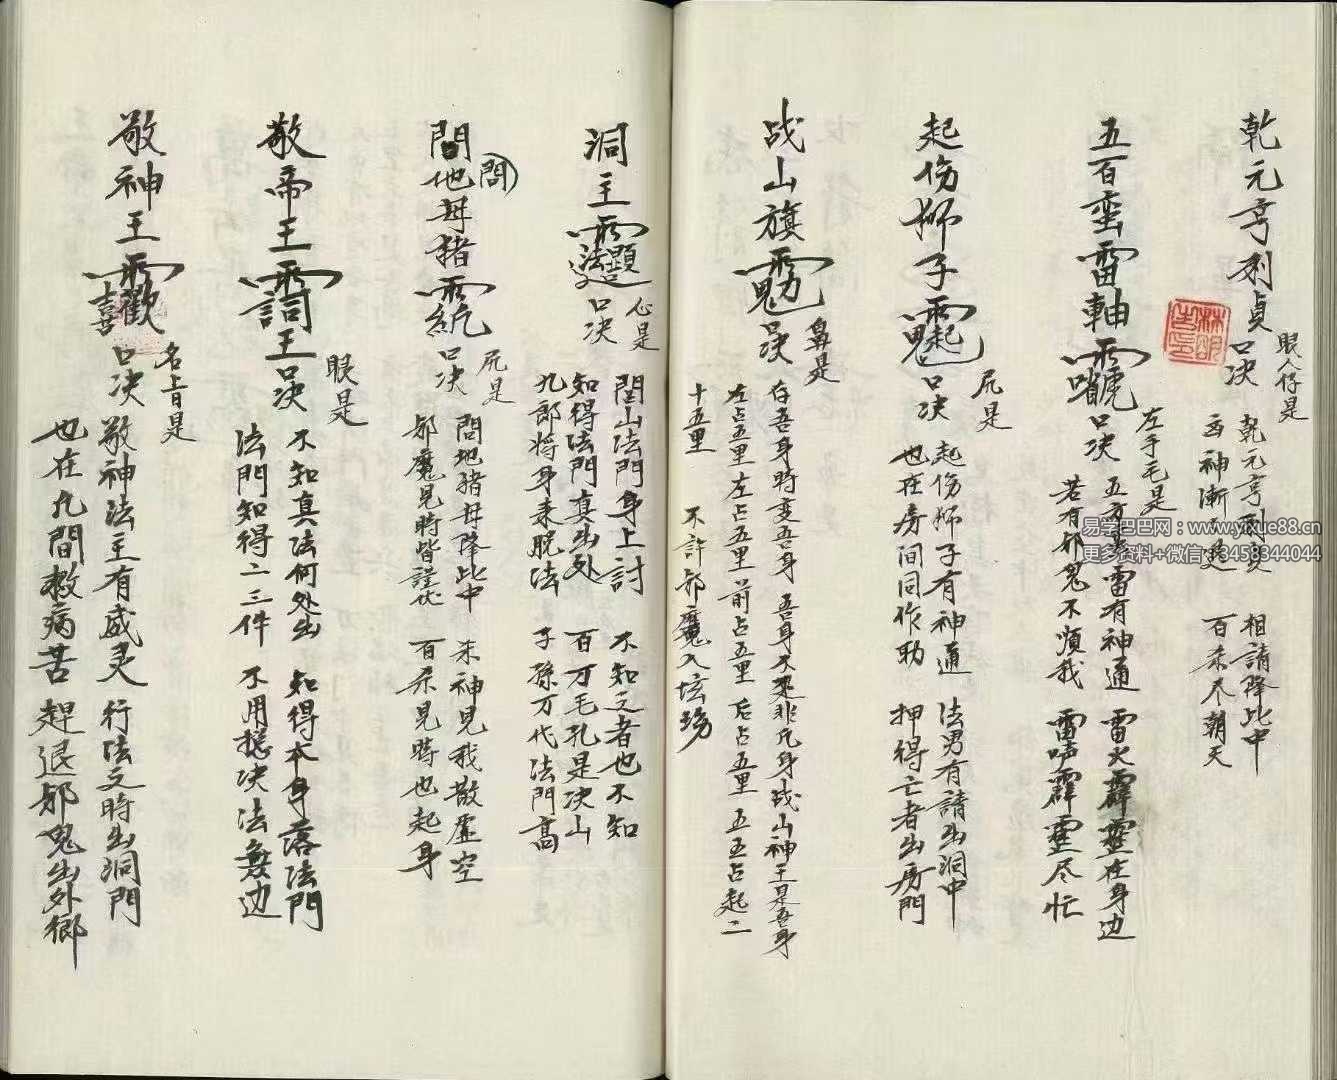 乾元亨利貞 口决
眼人仔是
乾元亨利貞 相請降此中
神漸 百杀尽朝天
五百蛮雷軸 口决
左手毛是
五百蛮雷有神通 雷火霹靂在身边
若有邪鬼不順我 雷声霹靂尽忙
起伤獅子 口决
尻是
起伤獅子有神通 法男有請出洞中
也在房间同作助 押得亡者出房門
战山旗 口决
鼻是
存吾身時变吾身 吾身不是非凡身战山神王是吾身
左占五里左占五里 前占五里 后占五里 五五占起二
十五里 不許邪魔入坛場
洞主 口决
心是
闾山法門身上討 不知之者也不知
知得法門真出处 百万毛孔是决山
九郎将身来脱法 子孫万代法門高
問地母豬 口决
問
尻是
問地豬母降此中 来神見我散虚空
邪魔見時皆謹伏 百杀見時也起身
敬帝王 王口决
眼是
不知真法何处出 知得本身落法門
法門知得二三件 不用搃决法無边
敬神王 口决
名上日是
敬神法主有威灵 行法之時出洞門
也在凡間救病苦 趕退邪鬼出外鄉
易学巴巴网：www.yixue88.cn
更多资料+微信：3458344044